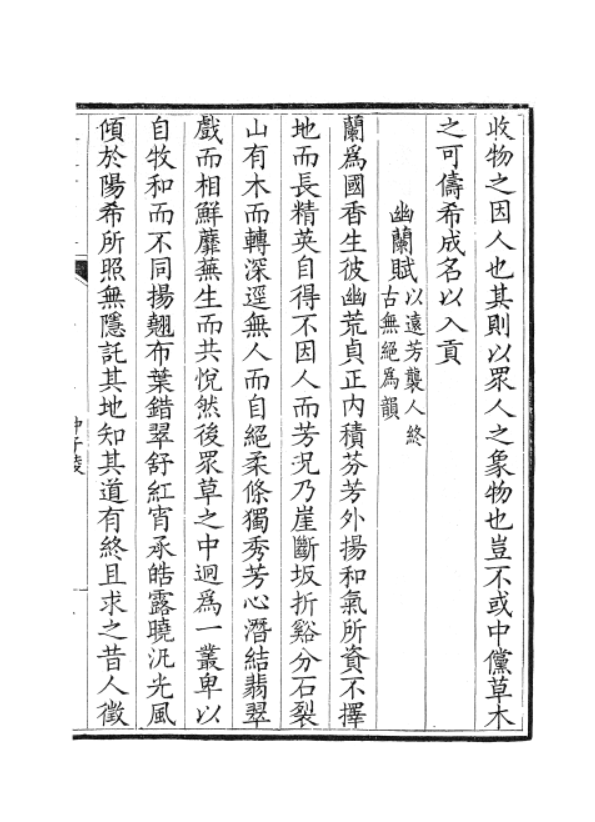 收物之因人也其則以眾人之象物也豈不或中儻草木
之可儔希成名以入貢
幽蘭賦以遠芳襲人終
古無絕為韻
蘭為國香生彼幽荒貞正內積芬芳外揚和氣所資不擇
地而長精英自得不因人而芳况乃崖斷坂折谿分石裂
山有木而轉深逕無人而自絕柔條獨秀芳心潛結翡翠
戲而相鮮蘼蕪生而共悅然後眾草之中迥為一叢卑以
自牧和而不同揚翹布葉錯翠舒紅宵承皓露曉汎光風
傾於陽希所照無隱託其地知其道有終且求之昔人徵